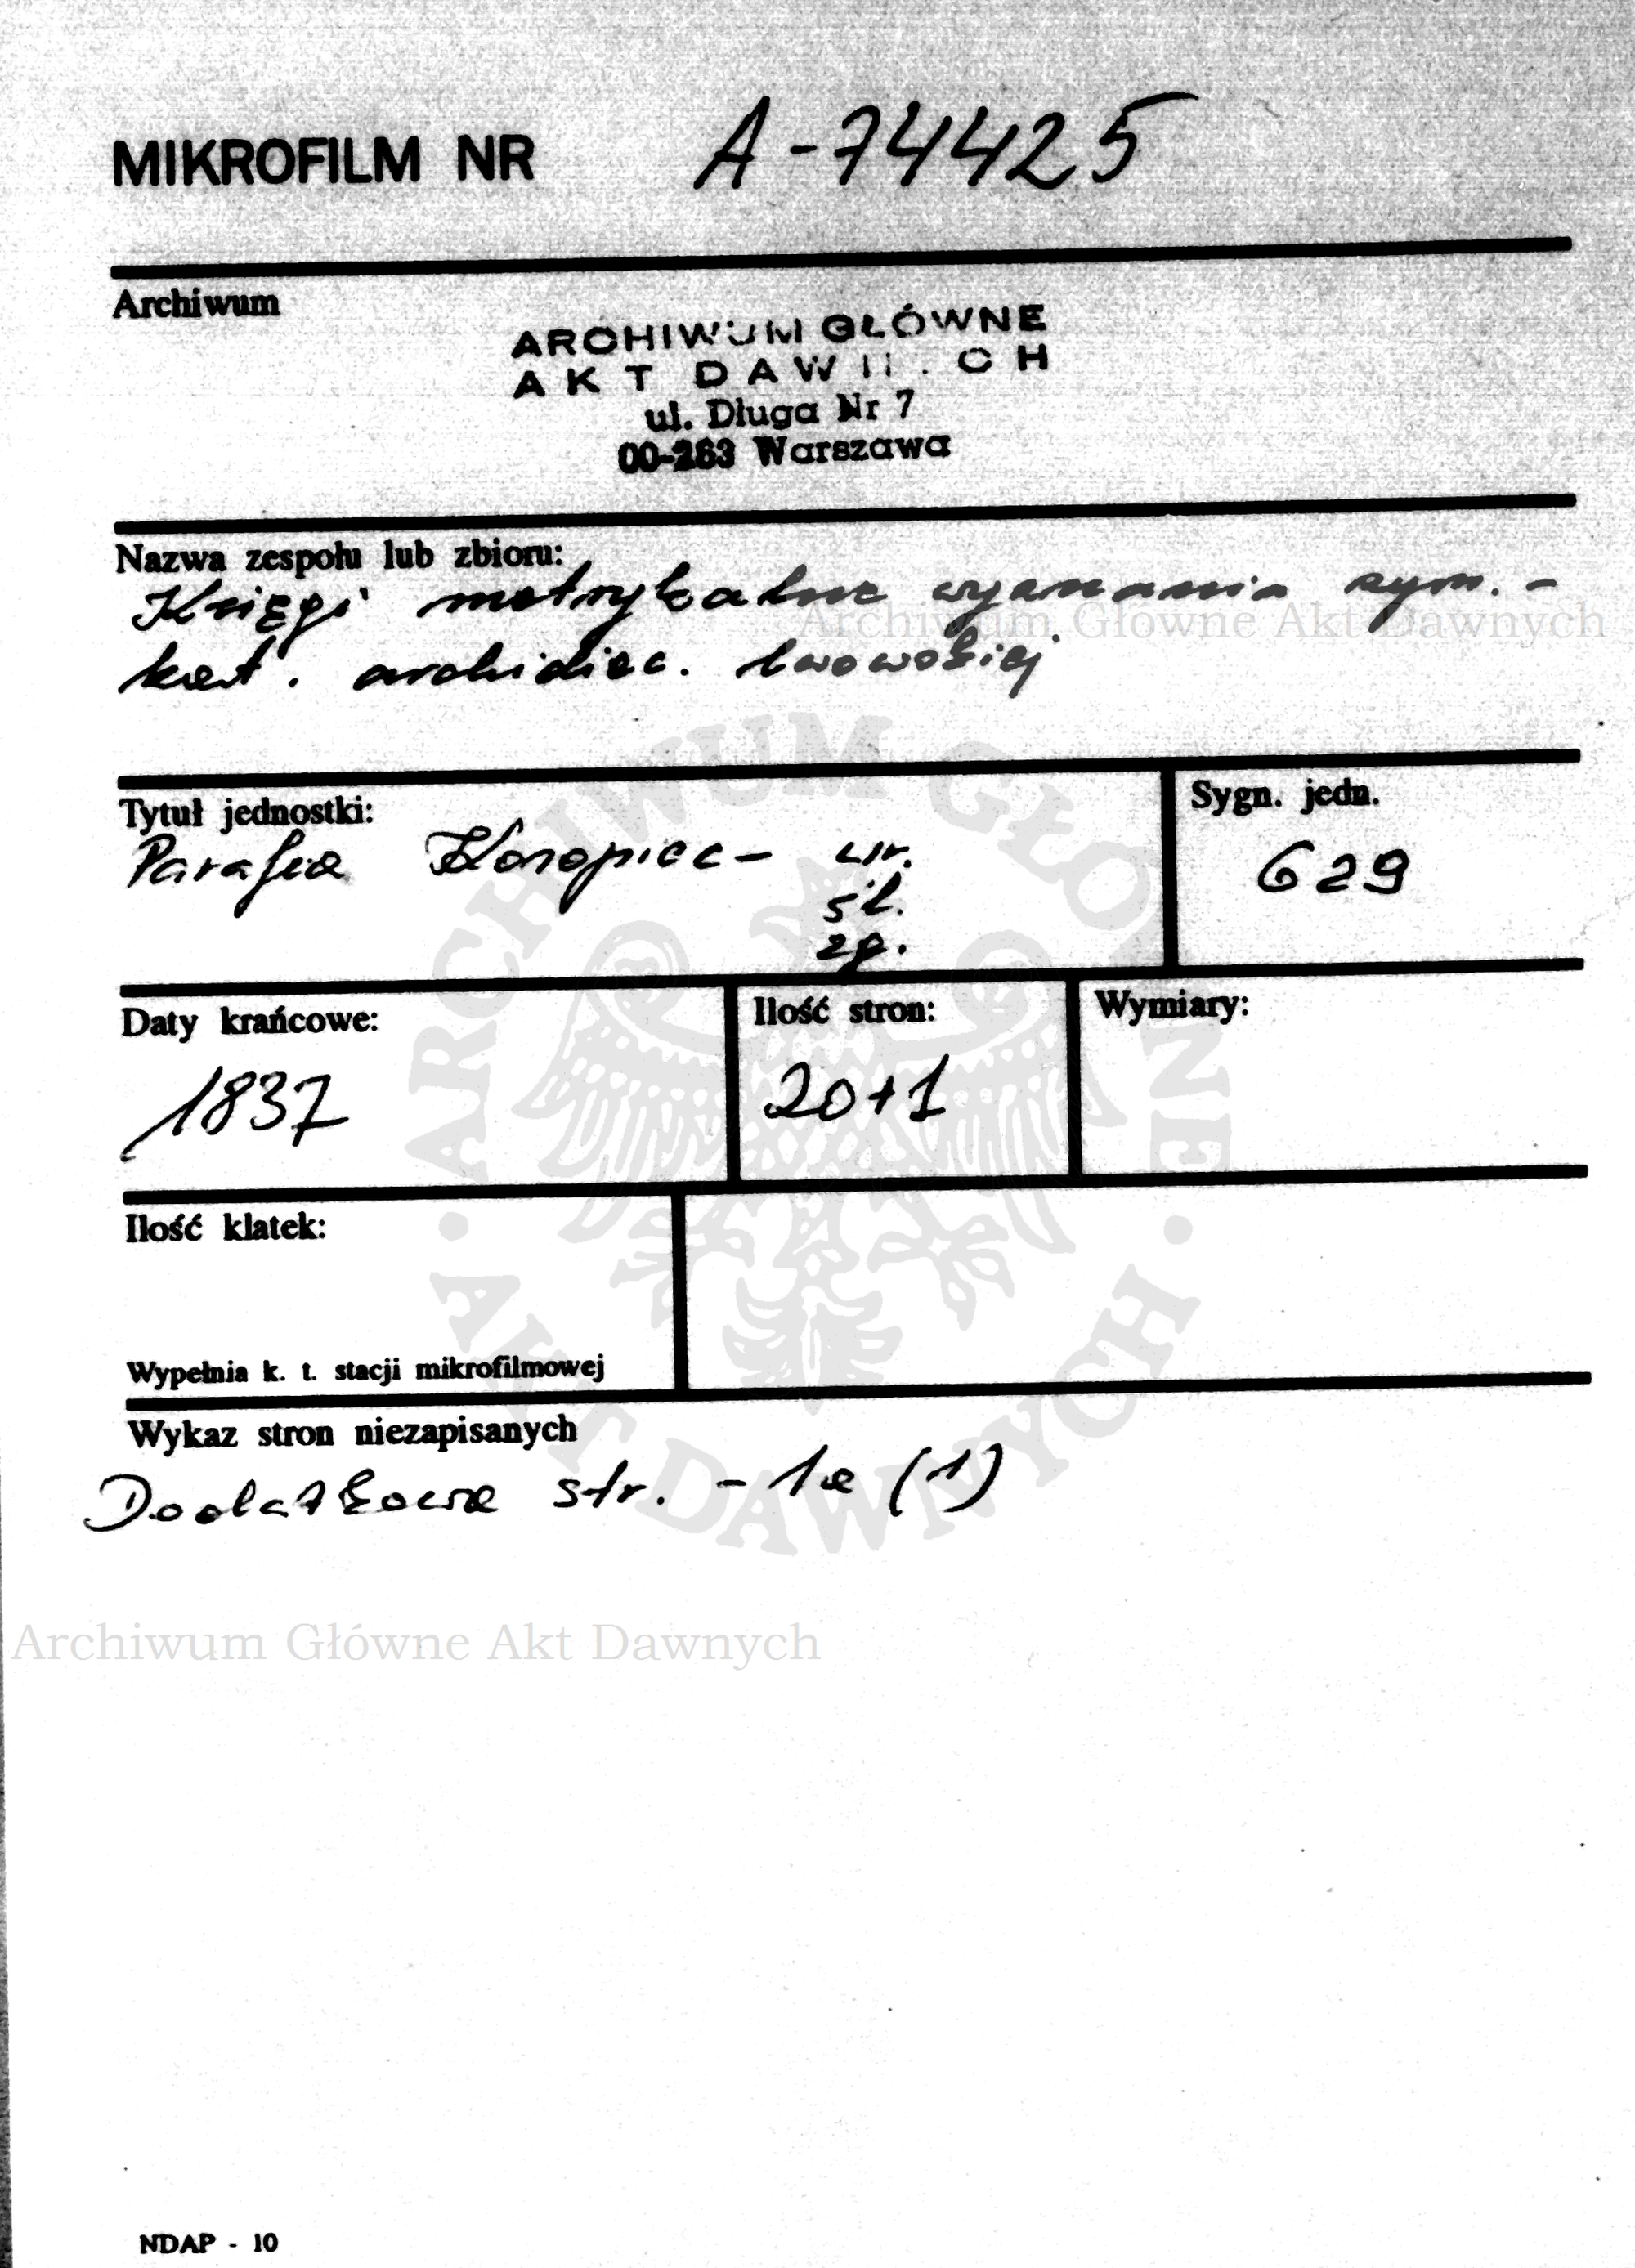 MIKROFILM NR A-74425
Archiwum
ARCHIWUM GŁÓWNE
AKT DAWN.CH
ul. Długa Nr 7
00-263 Warszawa
Nazwa zespołu lub zbioru:
Księgi metrykalne wyznania rzym.-
kat. archidiec. lwowskiej
Archiwum Główne Akt Dawnych
Tytuł jednostki:
Parafia Koropiec - ur.
śl.
zg.
Sygn. jedn.
629
Daty krańcowe:
1837
Ilość stron:
20+1
Wymiary:
Ilość klatek:
Wypełnia k. t. stacji mikrofilmowej
Wykaz stron niezapisanych
Dodatkowa str. - 1a (1)
ARCHIWUM GŁÓWNE · AKT DAWNYCH ·
Archiwum Główne Akt Dawnych
NDAP - 10